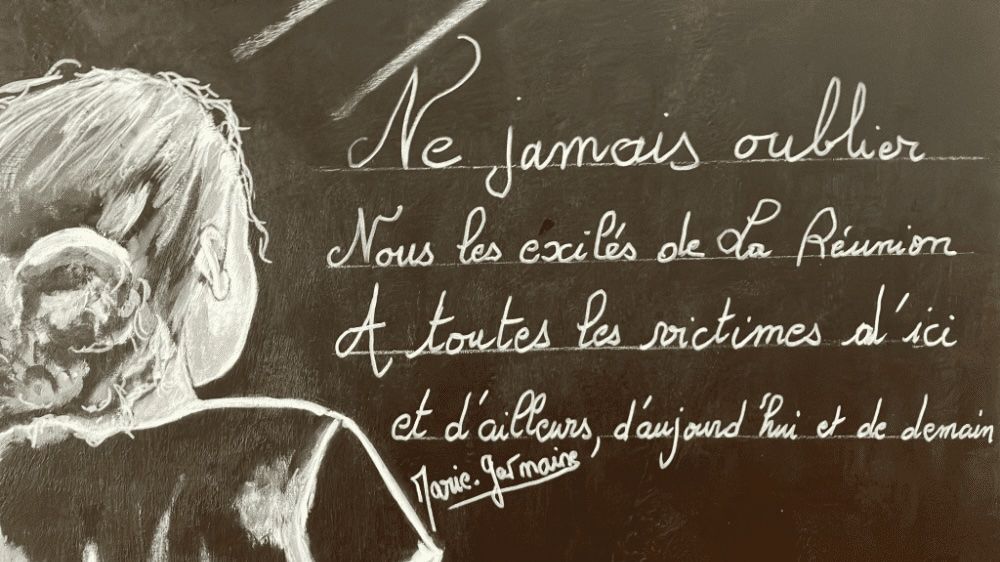 Ne jamais oublier
Nous les exilés de La Réunion
A toutes les victimes d'ici
et d'ailleurs, d'aujourd'hui et de demain
Marie-Germaine